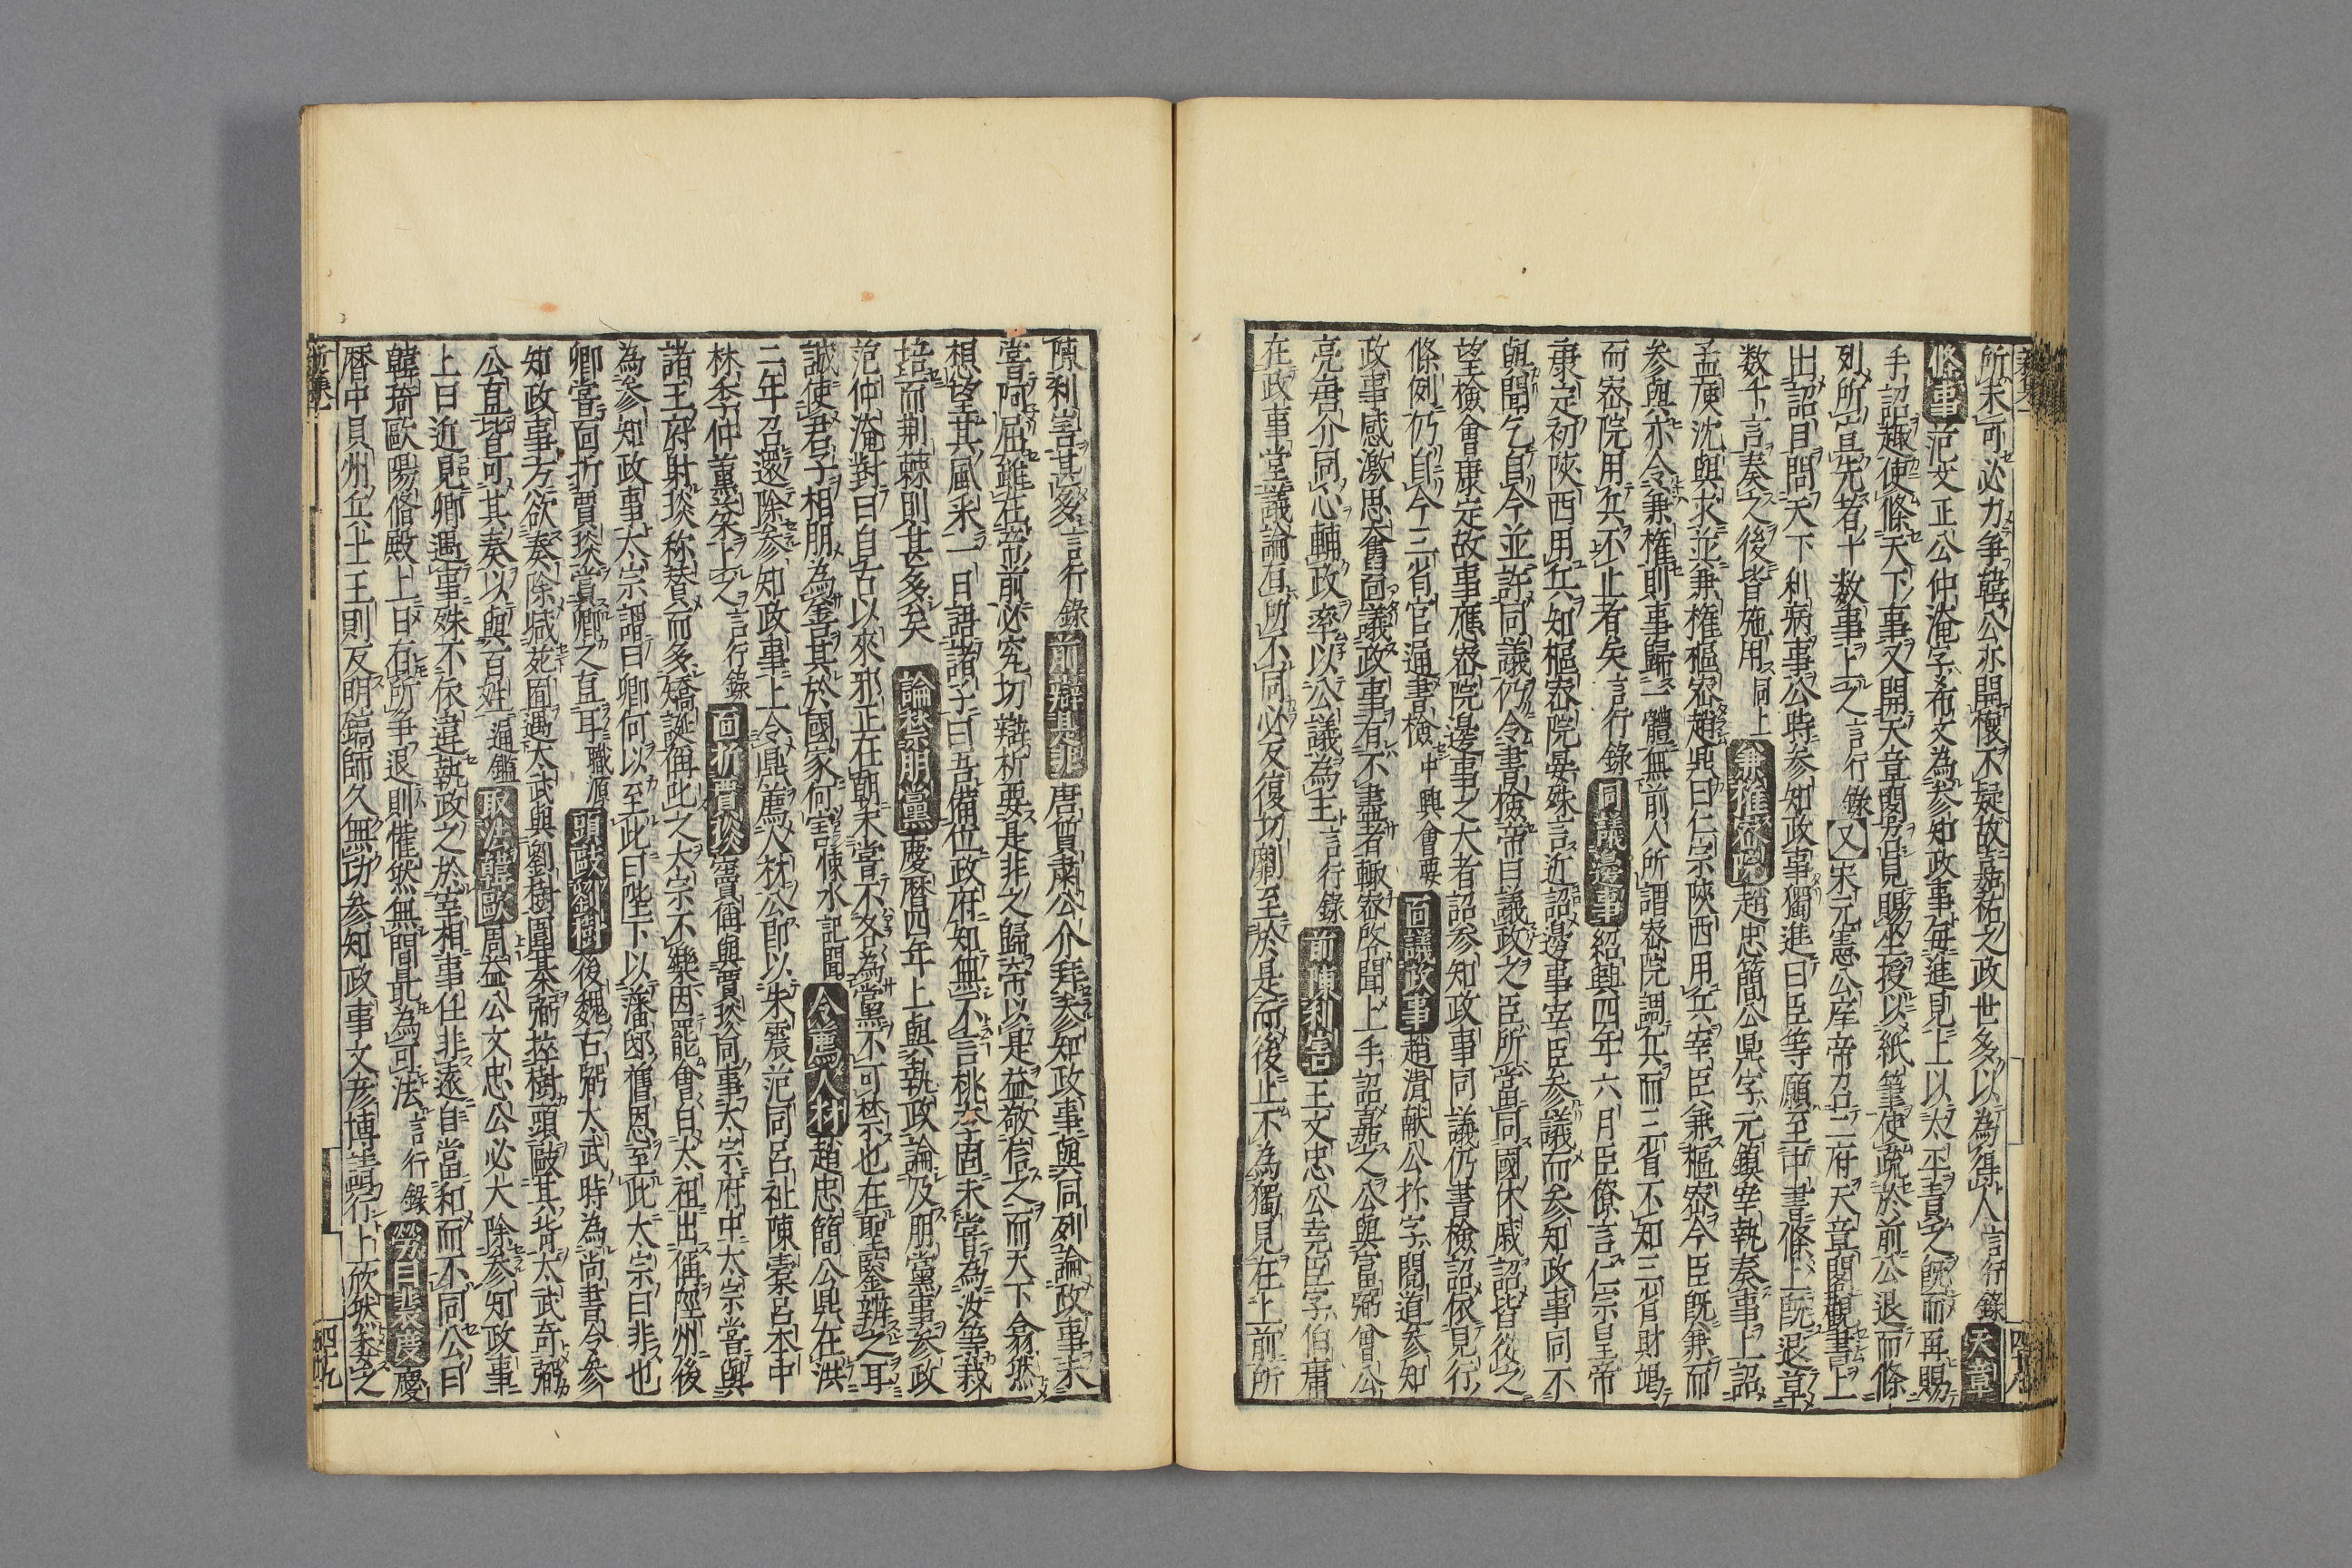 所未可必力爭韓公亦開懷不疑故嘉祐之政世多以為得人言行錄天章
條事范文正公仲淹字希文為參知政事每進見上以太平責之既而再賜
手詔趣使條天下事又開天章閣召見賜坐授以紙筆使疏於前公退而條
列所宜先者十数事上之言行錄又宋元憲公庠帝召二府天章閣觀書上
出詔目問天下利病事公時參知政事獨進曰臣等願至中書條上既退草
数千言奏之後皆施用同上兼權密院趙忠簡公鼎字元鎮宰執奏事上詔
孟庾沈與求並兼權樞密趙鼎曰仁宗陝西用兵宰臣兼樞密今臣既兼而
參與亦令兼權則事歸一體無前人所謂密院調兵而三省不知三省財竭
而密院用兵不止者矣言行錄同議邊事紹興四年六月臣僚言仁宗皇帝
康定初陝西用兵知樞密院晏殊言近詔邊事宰臣參議而參知政事同不
與聞乞自今並許同議仍令書檢帝曰議政之臣所當同國休戚詔皆從之
望檢會康定故事應密院邊事之大者詔參知政事同議仍書檢詔依見行
條例仍自今三省官通書檢中興會要面議政事趙清献公抃字閱道參知
政事感激思奮面議政事有不盡者輒密啓聞上手詔嘉之公與富弼曾公
亮吾介同心輔政率以公議為主言行錄前陳利害王文忠公堯臣字伯庸
在政事堂議論有所不同必反復切劘至於是而後止不為獨見在上前所
陳利害甚多言行錄前辯是非唐質肅公介拜參知政事與同列論政事未
嘗阿屈雖在帝前必究切辯析要是非之歸帝以是益敬信之而天下翕然
想望其風采一日語諸子曰吾備位政府知無不言桃李固未嘗為汝等栽
培而荆棘則甚多矣論禁朋黨慶曆四年上與執政論及朋黨事參政
范仲淹對曰自古以來邪正在朝未嘗不各為黨不可禁也在聖鑒辨之耳
誠使君子相朋為善其於國家何害涑水記聞令薦人材趙忠簡公鼎在洪
二年召還除參知政事上令鼎薦人材公即以朱震范同呂祉陳橐呂本中
林季仲董棻上之言行錄面折賈琰竇偁與賈琰同事太宗府中太宗嘗與
諸王府射琰称賛而多矯誕偁叱之太宗不樂因罷會白太祖出偁涇州後
為參知政事太宗謂曰卿何以至此曰陛下以藩邸舊恩至此太宗曰非也
卿嘗面折賈琰賞卿之直耳職源頭敺劉樹後魏古弼太武時為尚書令參
知政事方欲奏除减苑囿遇太武與劉樹圍棊弼捽樹頭敺其背太武奇弼
公直皆可其奏以與百姓通鑑取法韓歐周益公文忠公必大除參知政事
上曰近見卿遇事殊不依違執政之於宰相事任非遂自當和而不同公曰
韓琦歐陽脩殿上日有所爭退則惟然無間最為可法言行錄勞曰裴度慶
曆中貝州兵士王則反明鎬師久無功參知政事文彦博請行上欣然委之
四九